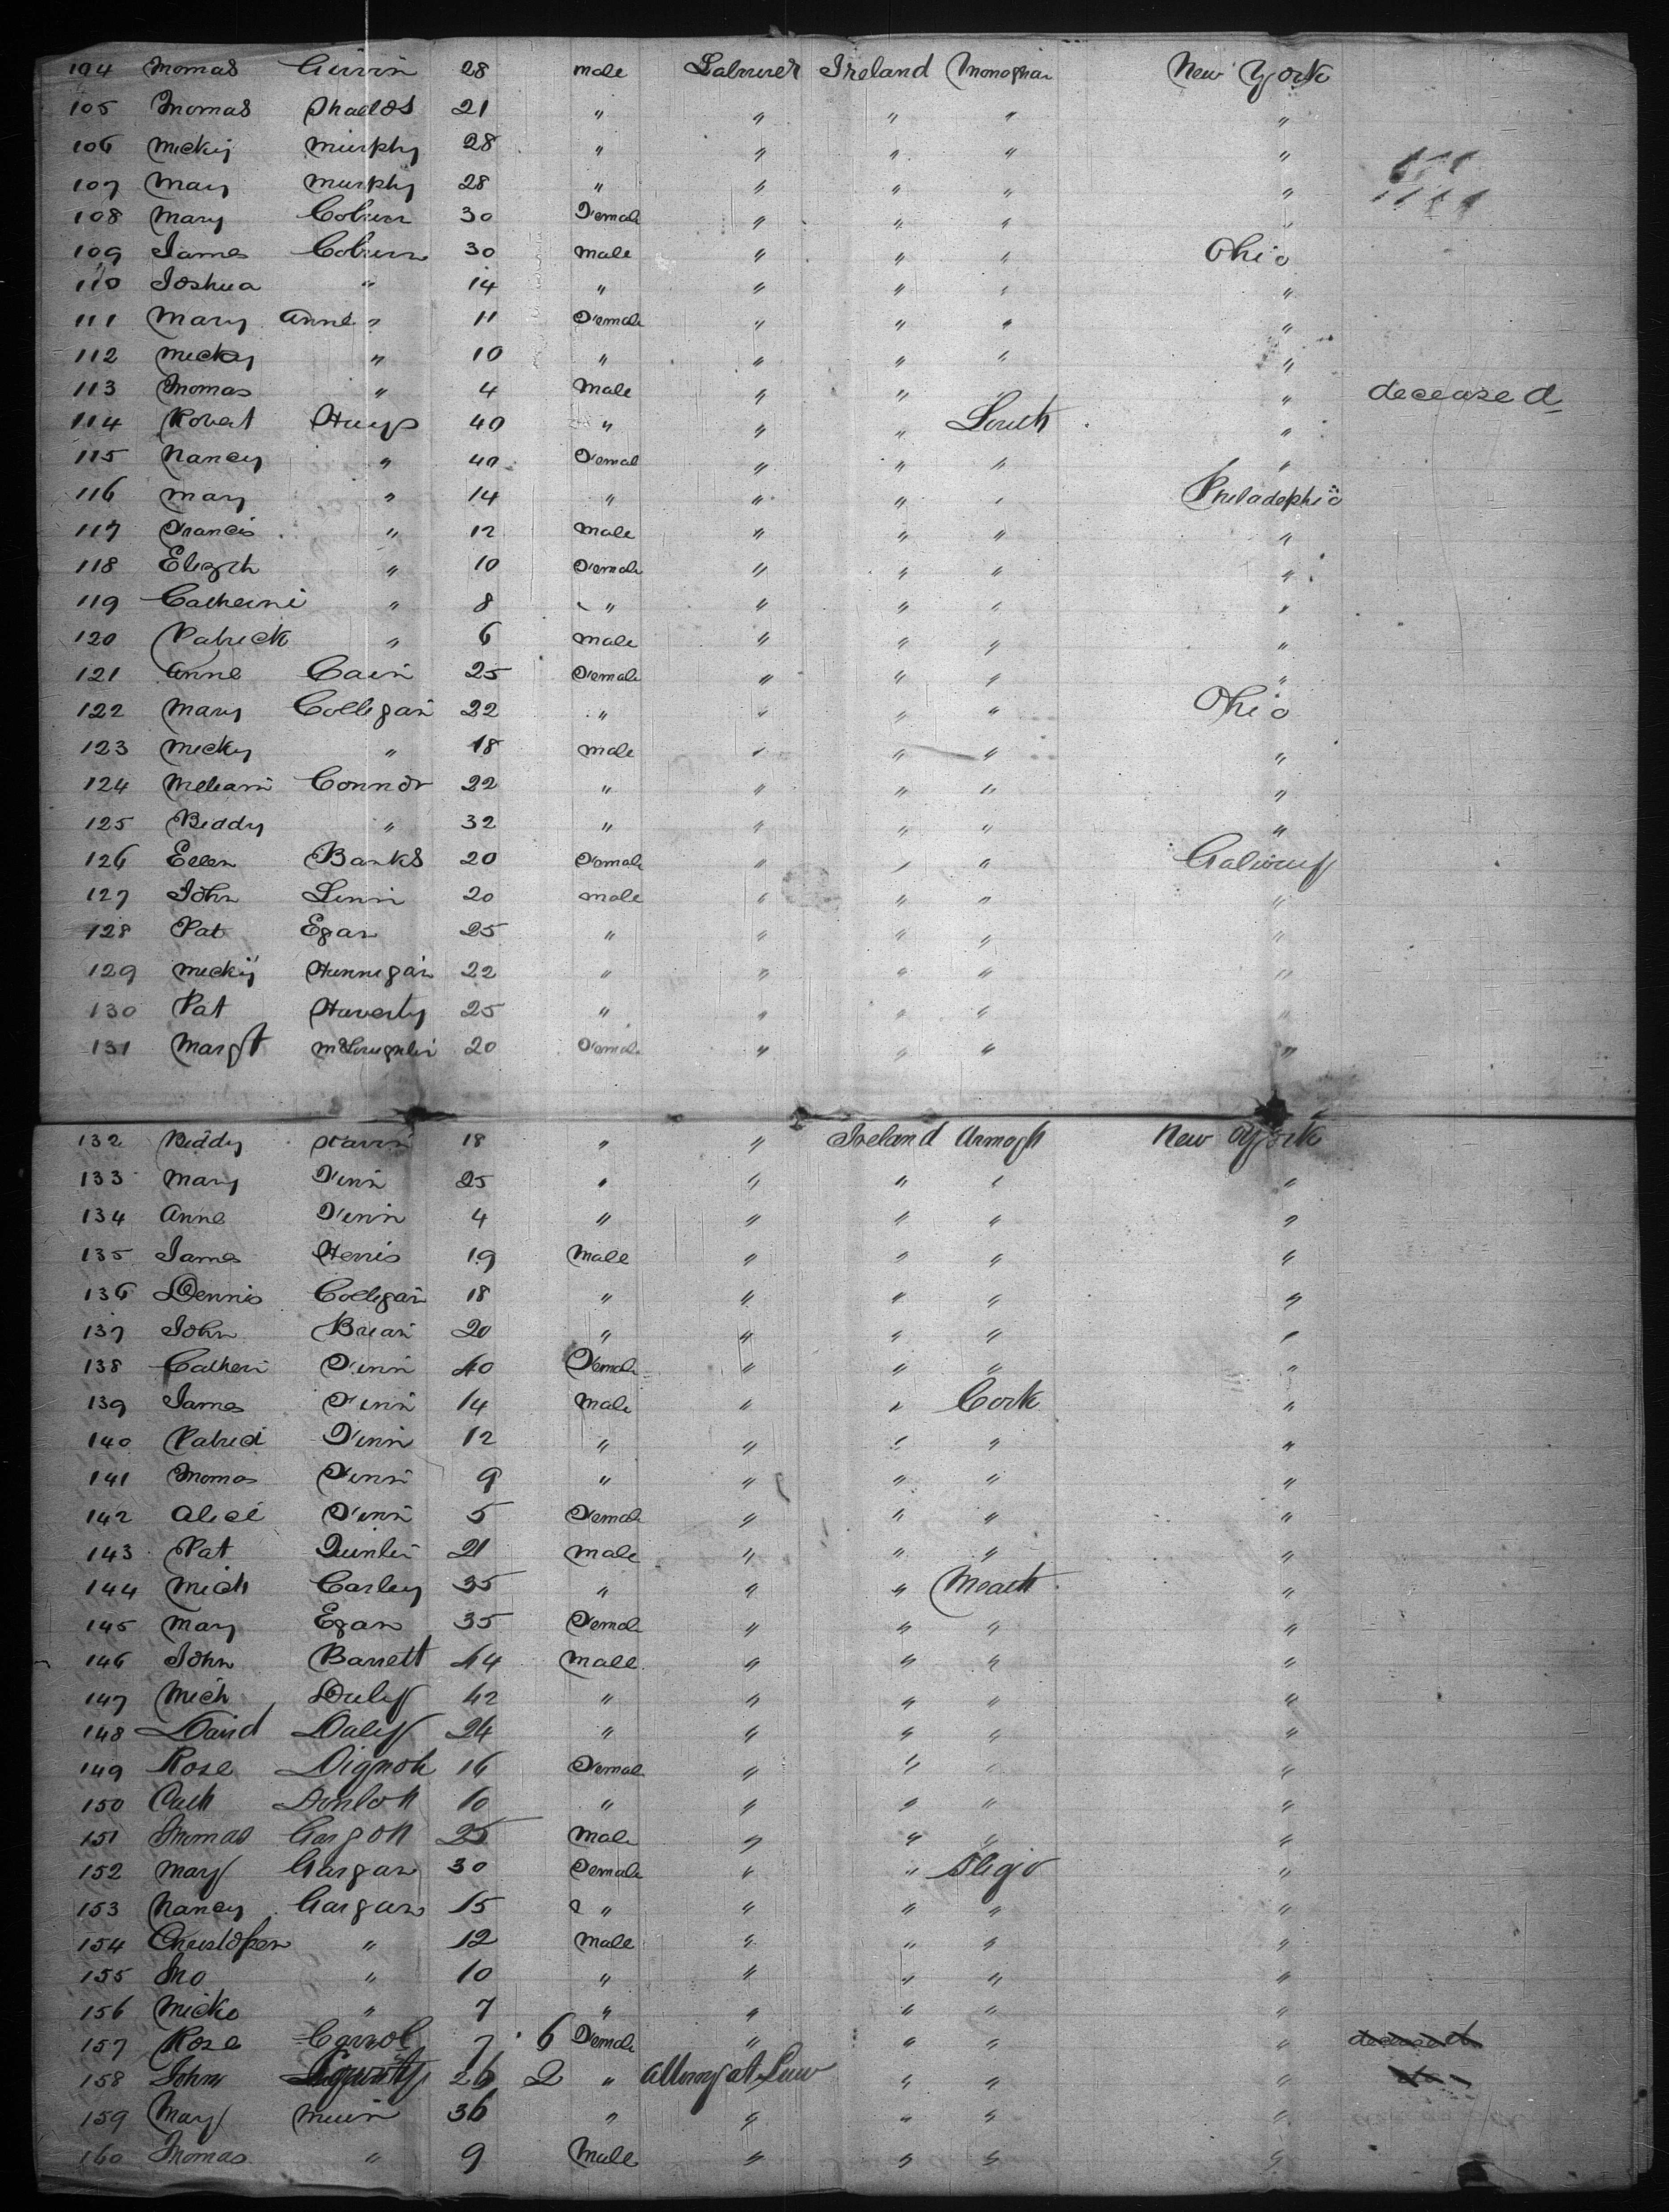 104 Thomas Girvin 28 male Labourer Ireland Monaghan New York
105 Thomas Shaelds 21 " " " " "
106 Micky Murphy 28 " " " " "
107 Mary Murphy 28 " " " " "
108 Mary Coburn 30 Female " " " "
109 James Coburn 30 male " " " Ohio
110 Joshua " 14 " " " " "
111 Mary Anne " 11 Female " " " "
112 Micky " 10 " " " " "
113 Thomas " 4 Male " " " " deceased
114 Robert Huys 40 " " " Louth "
115 Nancy " 40 Femal " " " "
116 Mary " 14 " " " " Philadephia
117 Francis " 12 male " " " "
118 Elizth " 10 Female " " " "
119 Catherine " 8 " " " " "
120 Patrick " 6 male " " " "
121 Anne Cain 25 Female " " " "
122 Mary Colligan 22 " " " " Ohio
123 Micky " 18 male " " " "
124 William Connor 22 " " " " "
125 Biddy " 32 " " " " "
126 Ellen Banks 20 Female " " "
127 John 20 male " " " "
128 Pat Egan 25 " " " " "
129 Micky Hunnigan 22 " " " " "
130 Pat Haverty 25 " " " " "
131 Margt McLoughlin 20 Female " " " "
132 Biddy 18 " " Ireland Armagh New York
133 Mary Finn 25 " " " " "
134 Anne Finn 4 " " " " "
135 James Herris 19 Male " " " "
136 Dennis Colligan 18 " " " " "
137 John Brian 20 " " " " "
138 Catheri Finn 40 Female " " " "
139 James Finn 14 Male " " Cork "
140 Patrick Finn 12 " " " " "
141 Thomas Finn 9 " " " " "
142 Alice Finn 5 Female " " " "
143 Pat Quinlin 21 male " " " "
144 Mich Carley 35 " " " Meath "
145 Mary Egan 35 Female " " " "
146 John Barrett 44 Male " " " "
147 Mich Duly 42 " " " " "
148 David Daly 24 " " " " "
149 Rose Dignoh 16 Femal " " " "
150 Cath 10 " " " " "
151 Thomas Gargon 25 Male " " " "
152 Mary Gargan 30 Female " " Sligo "
153 Nancy Gargan 15 " " " " "
154 Christopher " 12 Male " " " "
155 Tho " 10 " " " " "
156 Micko " 7 " " " " "
157 Rose Carrol 7 6 Female " " " " deceased
158 John 26 2 " Attorney at Law " " "
159 Mary 36 " " " " "
160 Thomas " 9 Male " " " "